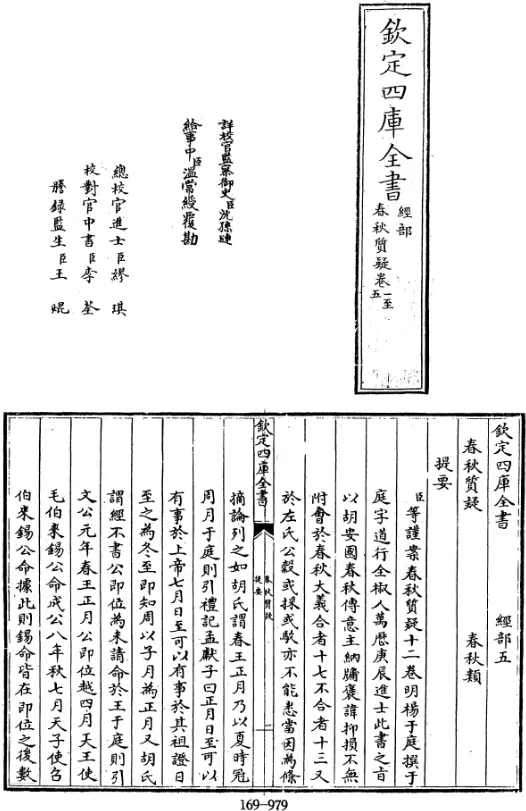 欽定四庫全書
經部
春秋質疑卷一至五
詳校官監察御史臣沈孫璉
給事中臣溫常綬覆勘
總校官進士臣繆琪
校對官中書臣李荃
謄錄監生臣王焜
欽定四庫全書 經部五
春秋質疑 春秋類
提要
臣等謹案春秋質疑十二卷明楊于庭撰于
庭字道行全椒人萬厯庚辰進士此書之㫖
以胡安國春秋傳意主納牖褒諱抑損不無
附會於春秋大義合者十七不合者十三又
於左氏公穀或採或駁亦不能悉當因為條
欽定四庫全書
春秋質疑
提要
一
摘論列之如胡氏謂春王正月乃以夏時冠
周月于庭則引禮記孟獻子曰正月日至可以
有事於上帝七月日至可以有事於其祖證日
至之為冬至即知周以子月為正月又胡氏
謂經不書公即位為未請命於王于庭則引
文公元年春王正月公即位越四月天王使
毛伯來錫公命成公八年秋七月天子使召
伯來錫公命據此則錫命皆在即位之後數
169-979